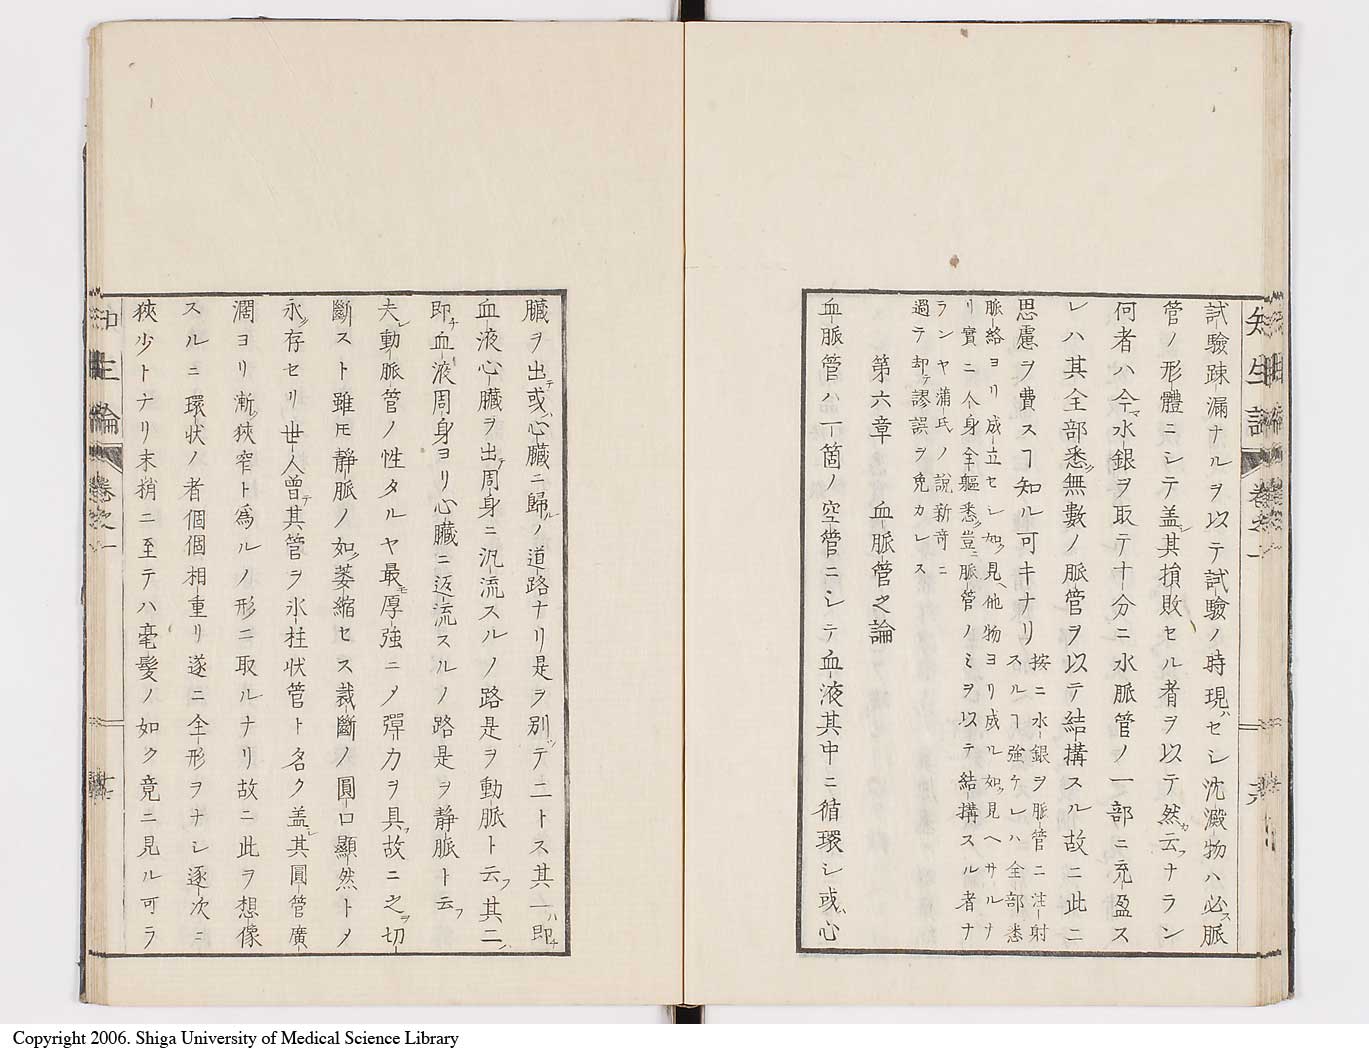 試驗疎漏ナルヲ以テ試驗ノ時現ハセシ沈澱物ハ必ス脈
管ノ形體ニシテ盖シ其損敗セル者ヲ以テ然カ云フナラン
何者ハ今マ水銀ヲ取テ十分ニ水脈管ノ一部ニ充盈ス
レハ其全部悉ク無數ノ脈管ヲ以テ結構スル故ニ此ニ
思慮ヲ費スヿ知ル可キナリ
按ニ水銀ヲ脈管ニ注射
スルヿ強ケレハ全部悉
脈絡ヨリ成立セシ如ク見ヘ他物ヨリ成ル如ク見ヘサルナ
リ實ニ人身全軀悉ク豈ニ脈管ノミヲ以テ結搆スル者ナ
ランヤ蒲氏ノ說新奇ニ
過テ却テ謬誤ヲ免カレス
第六章 血脈管之論
血脈管ハ一箇ノ空管ニシテ血液其中ニ循環シ或ハ心
臟ヲ出テ或ハ心臟ニ歸ルノ道路ナリ是ヲ別ツテ二トス其一ハ即チ
血液心臟ヲ出テ周身ニ汎流スルノ路是ヲ動脈ト云フ其二ハ
即チ血液周身ヨリ心臟ニ返流スルノ路是ヲ静脈ト云フ
夫レ動脈管ノ性タルヤ最モ厚強ニメ彈力ヲ具フ故ニ之ヲ切
斷スト雖モ静脈ノ如ク萎縮セス裁斷ノ圓口顯然トメ
永ク存セリ世人曾テ其管ヲ氷柱状管ト名ク盖シ其圓管廣
濶ヨリ漸ク狹窄ト爲ルノ形ニ取ルナリ故ニ此ヲ想像
スルニ環状ノ者個個相重リ遂ニ全形ヲナシ逐次ニ
狹少トナリ末梢ニ至テハ毫髮ノ如ク竟ニ見ル可ラ
知生論 卷之一
Copyright 2006. Shiga University of Medical Science Library